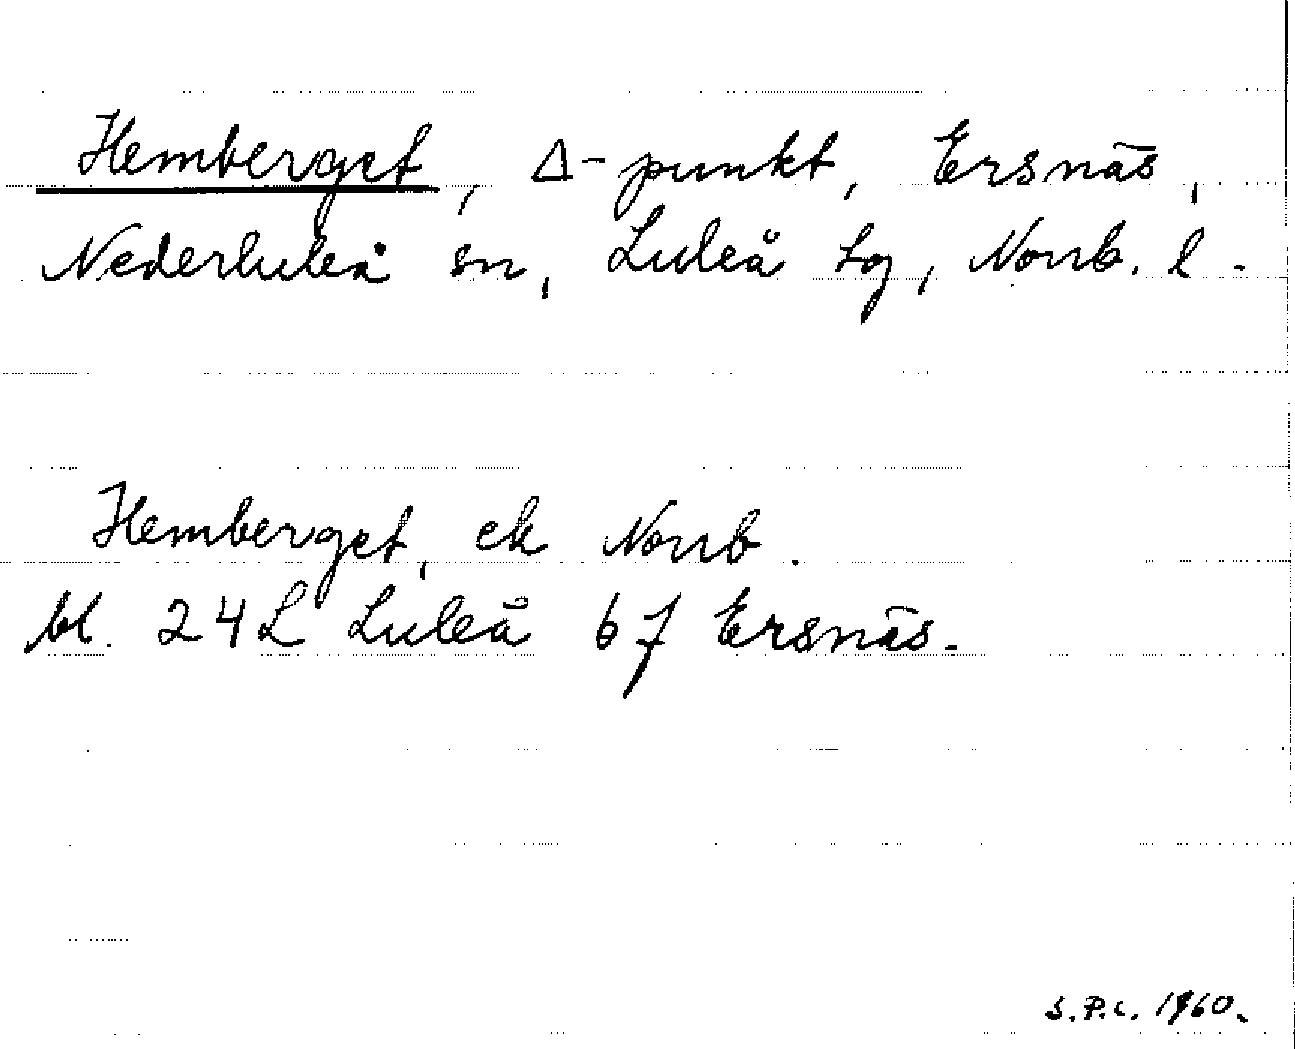 Hemberget, Δ-punkt, Ersnäs,
Nederluleå sn, Luleå tg, Norrb. l.
Hemberget, ek Norrb.
bl. 24L Luleå 6 7 Ersnäs.
S.P.C. 1960.